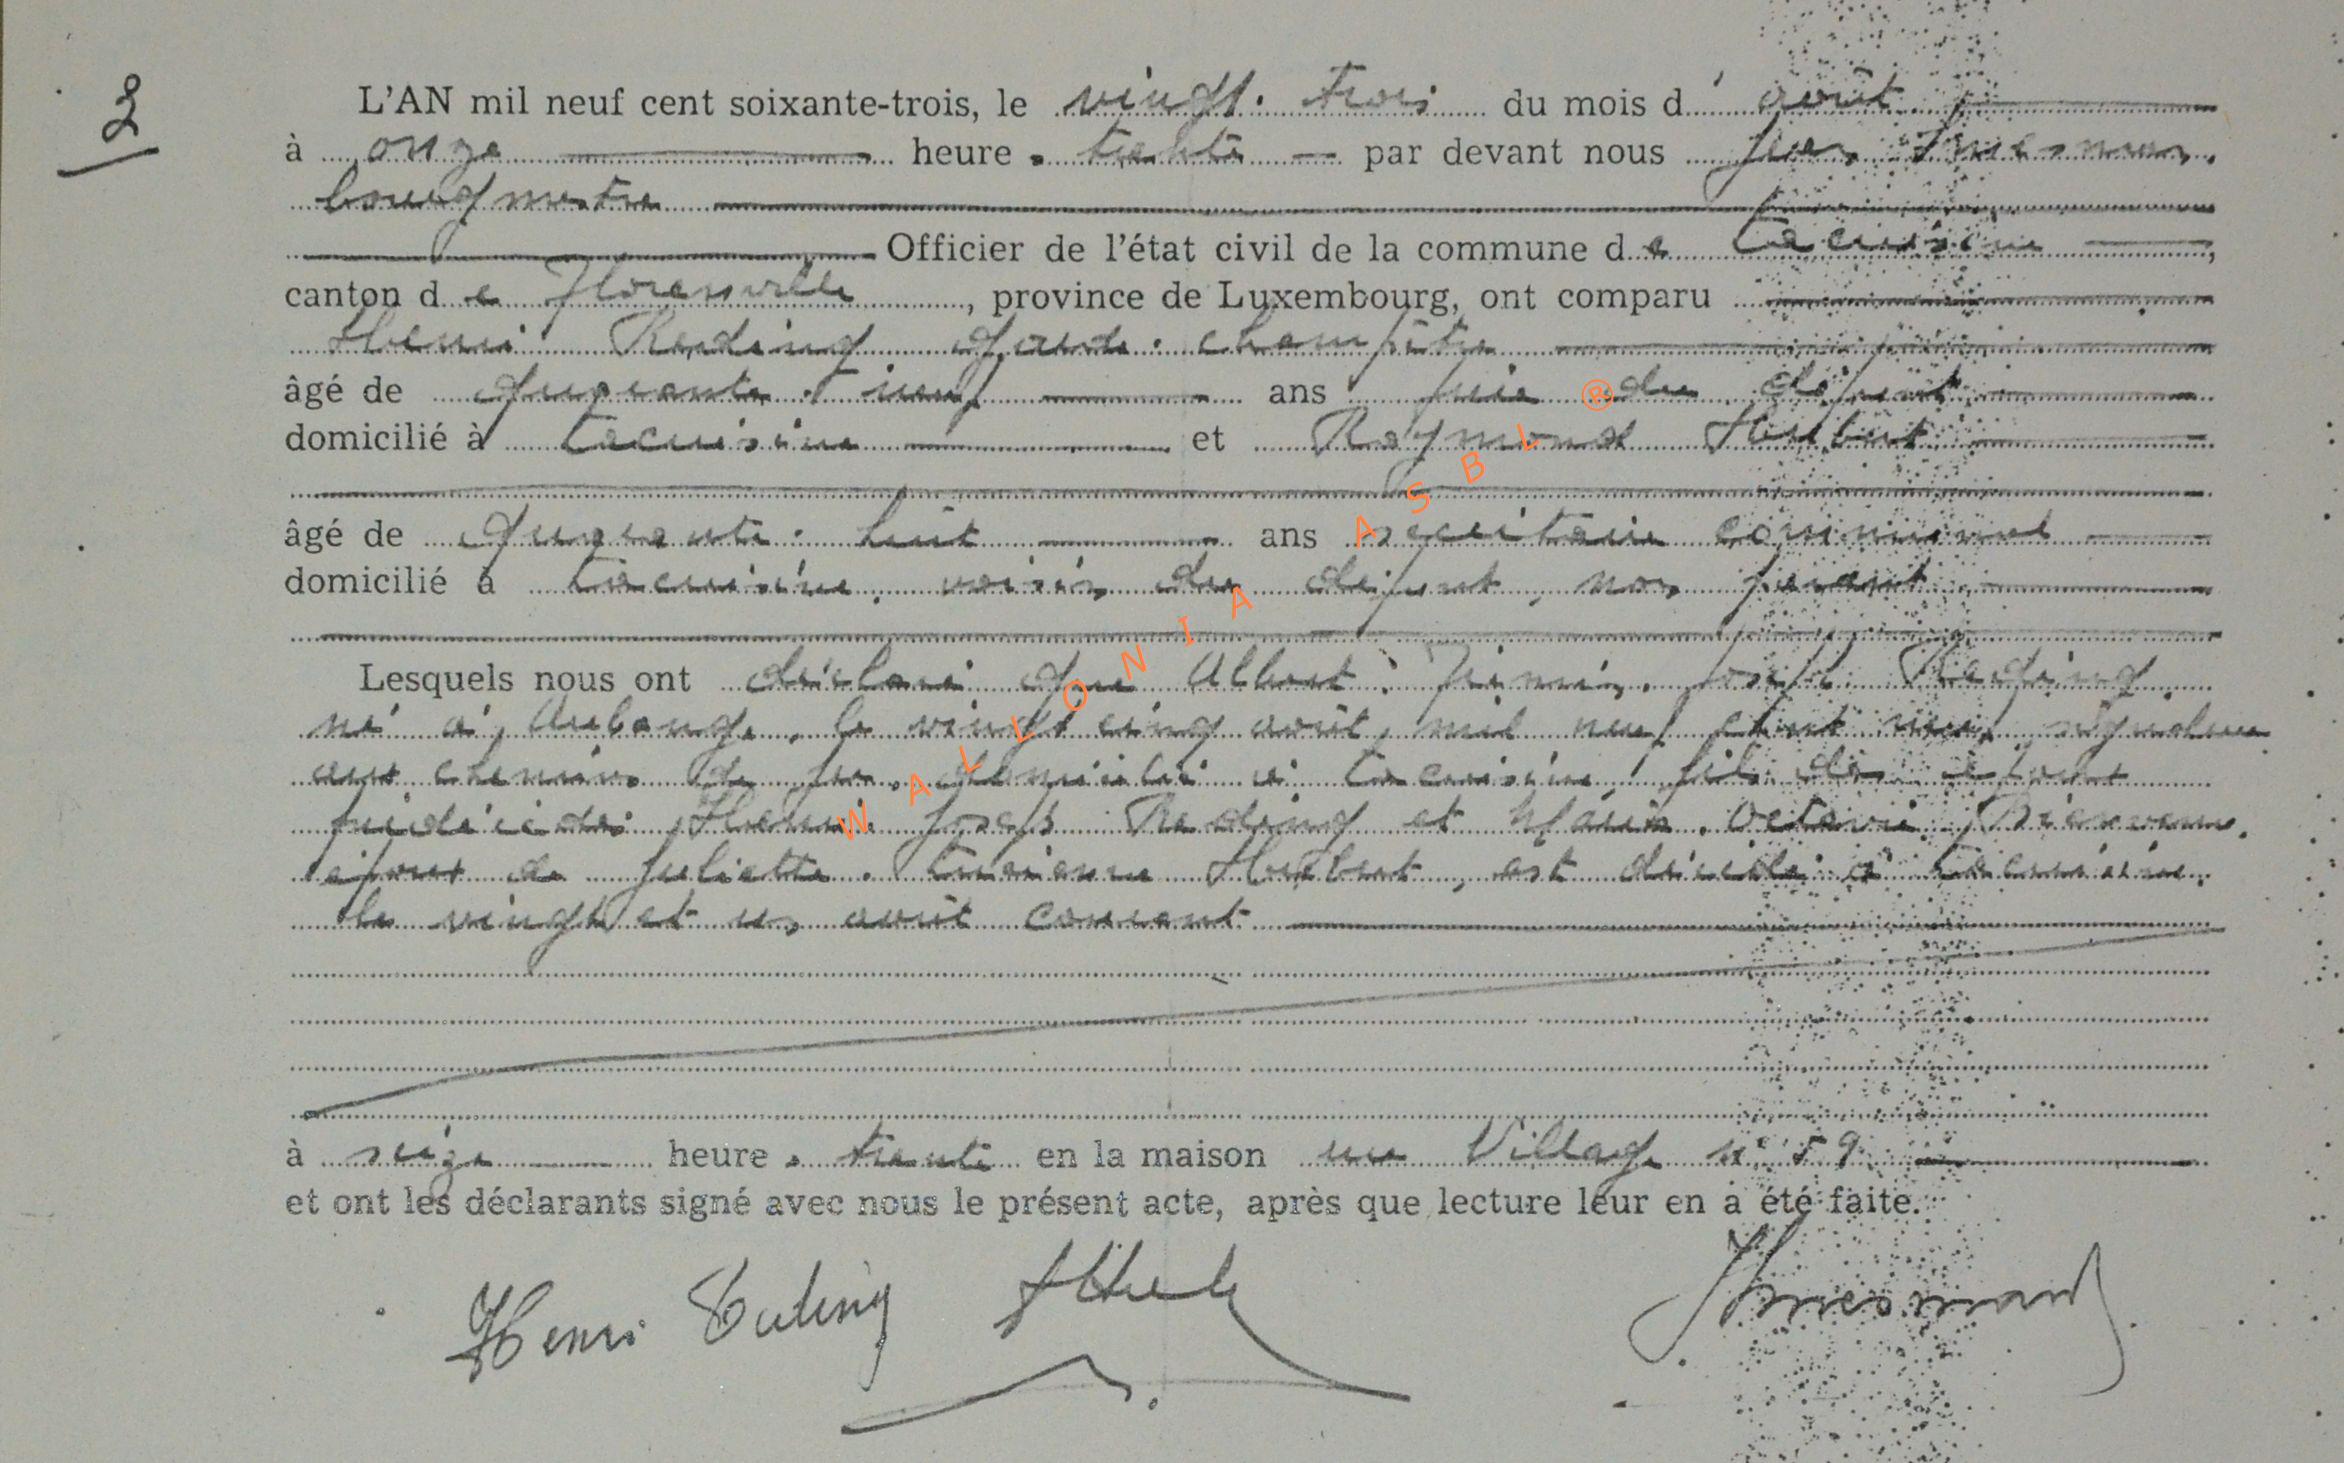 2
L'AN mil neuf cent soixante-trois, le vingt-trois du mois d'août
à onze heures trente par devant nous Jean
bourgmestre
Officier de l'état civil de la commune de Lacuisine,
canton de Florenville, province de Luxembourg, ont comparu
Henri Reding garde-champêtre
âgé de quarante-neuf ans frère du défunt
domicilié à Lacuisine et Raymond Hubert
âgé de quarante-huit ans secrétaire communal
domicilié à Lacuisine, voisin du défunt, non parent
Lesquels nous ont déclaré que Albert-Firmin-Joseph Reding
né à Aubange, le vingt cinq août mil neuf cent neuf, signaleur
aux chemins de fer, domicilié à Lacuisine, fils des époux
prédécédés Henri-Joseph Reding et Maria-Octavie Bienvenu,
époux de Juliette Hubert, est décédé à Lacuisine,
le vingt et un août courant
à seize heures trente en la maison rue Village n° 59
et ont les déclarants signé avec nous le présent acte, après que lecture leur en a été faite.
Henri Reding
WALLONIA ASBL ®